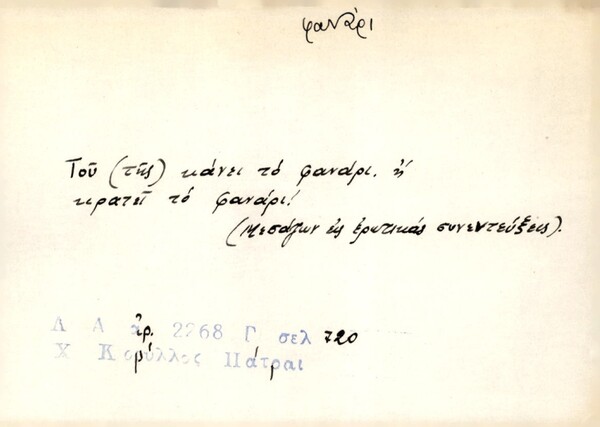 φανάρι
Τοῦ (τῆς) κάνει τό φανάρι. ἤ
κρατεῖ τό φανάρι!
(Μεσάζων εἰς ἐρωτικάς συνεντεύξεις).
Λ Α ἀρ. 2268 Γ σελ 720
Χ Κορύλλος Πάτραι